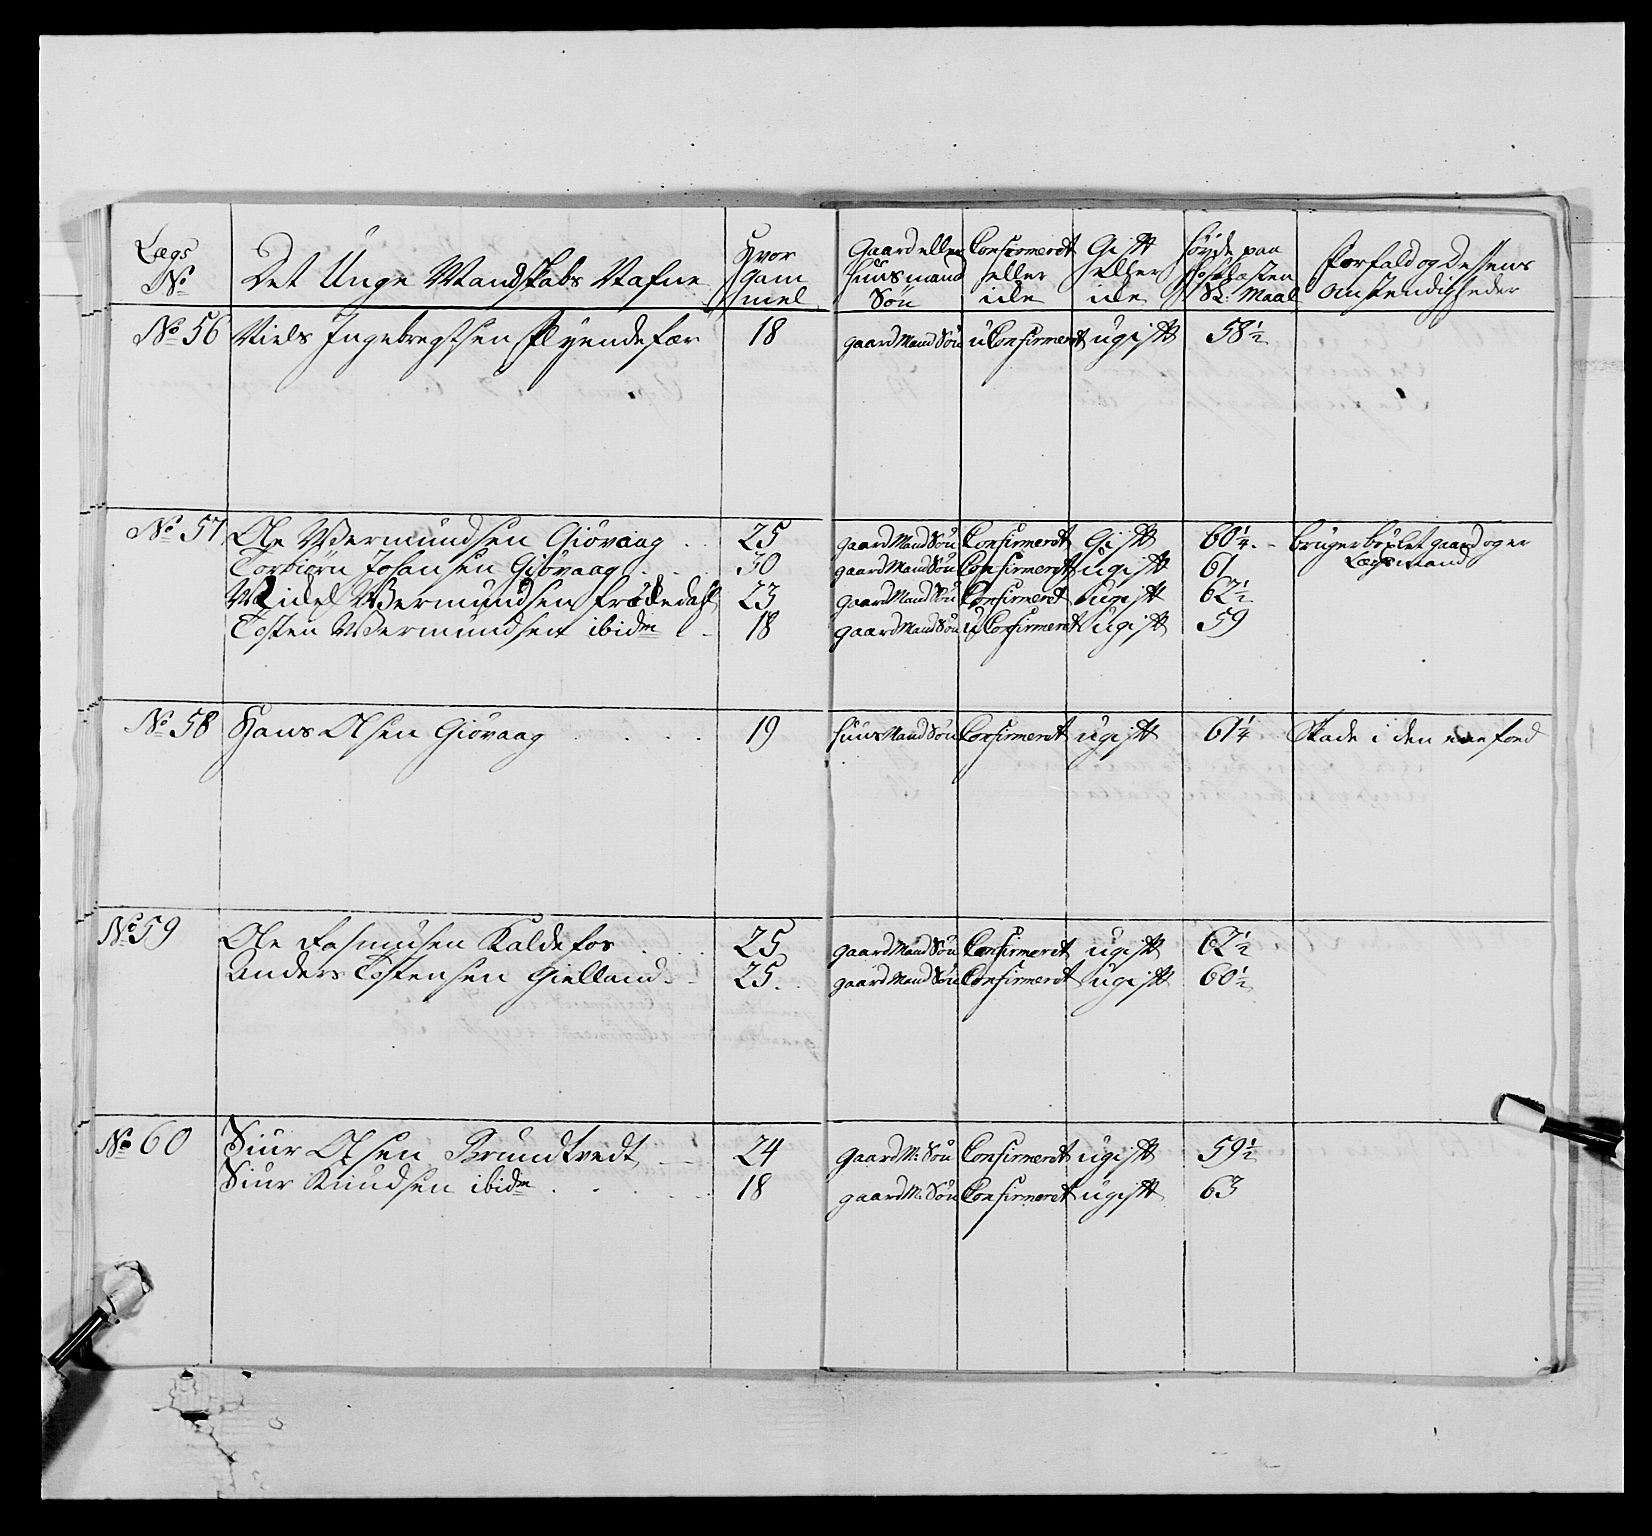 Lægs No | Det Unge Mandskabs Nafne | Hvor gammel | Gaard eller Huusmand Søn | Confirmeret eller icke | Gift eller icke | Høyde paa Hoselæsten Sl: Maal | Forfald og Dessens Omstendigheder
No 56 | Niels Ingebregtsen | 18 | gaardMand Søn | uConfirmeret | ugift | 58½
No 57 | Ole Wermundsen Giøvaag | 25 | gaardMand Søn | Confirmeret | Gift | 60¼ | bruger gaard og er
Torbiørn Johansen Giøvaag | 30 | gaardMand Søn | Confirmeret | ugift | 61 | Lægsmand
Wermundsen | 23 | gaardMand Søn | Confirmeret | ugift | 62½
Tosten Wermundsen ibidm | 18 | gaardMand Søn | uConfirmeret | ugift | 59
No 58 | Hans Olsen Giøvaag | 19 | HuusMand Søn | Confirmeret | ugift | 61¼ | Skade i den eene foed
No 59 | Ole Rasmusen Kaldefos | 25 | gaardMand Søn | Confirmeret | ugift | 62½
Anders Tostensen Gielland | 25 | gaardMand Søn | Confirmeret | ugift | 60½
No 60 | Siur Olsen Brundtvedt | 24 | gaardM: Søn | Confirmeret | ugift | 59½
Siur Knudsen ibidm | 18 | gaardM: Søn | Confirmeret | ugift | 63